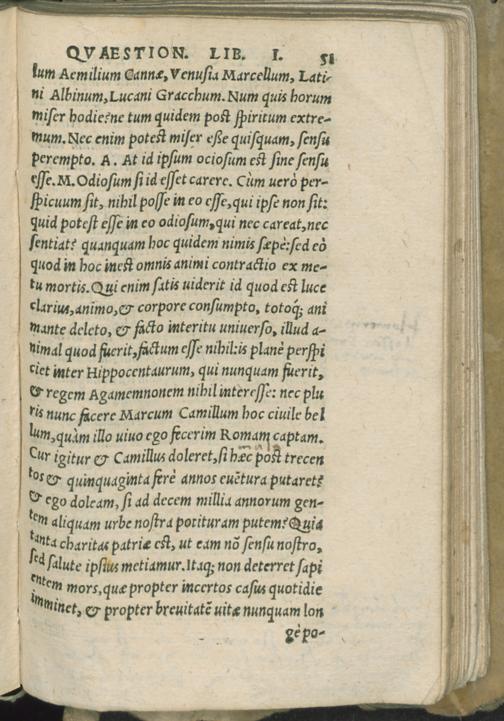 QVAESTION. LIB. I. 51
lum Aemilium Cannæ, Venusia Marcellum, Lati-
ni Albinum, Lucani Gracchum. Num quis horum
miser hodie? ne tum quidem post spiritum extre-
mum. Nec enim potest miser esse quisquam, sensu
perempto. A. At id ipsum ociosum est sine sensu
esse. M. Odiosum si id esset carere. Cùm uerò per-
spicuum sit, nihil posse in eo esse, qui ipse non sit:
quid potest esse in eo odiosum, qui nec careat, nec
sentiat? quanquam hoc quidem nimis sæpè: sed eò
quod in hoc inest omnis animi contractio ex me-
tu mortis. Qui enim satis uiderit id quod est luce
clarius, animo, & corpore consumpto, totoq; ani
mante deleto, & facto interitu uniuerso, illud a-
nimal quod fuerit, factum esse nihil: is planè perspi
ciet inter Hippocentaurum, qui nunquam fuerit,
& regem Agamemnonem nihil interesse: nec plu
ris nunc facere Marcum Camillum hoc ciuile bel
lum, quàm illo uiuo ego fecerim Romam captam.
mala
Cur igitur & Camillus doleret, si hæc post trecen
tos & quinquaginta ferè annos euẽtura putaret?
& ego doleam, si ad decem millia annorum gen-
tem aliquam urbe nostra potituram putem? Quia
tanta charitas patriæ est, ut eam nõ sensu nostro,
sed salute ipsius metiamur. Itaq; non deterret sapi
entem mors, quæ propter incertos casus quotidie
imminet, & propter breuitatẽ uitæ nunquam lon
gè po-